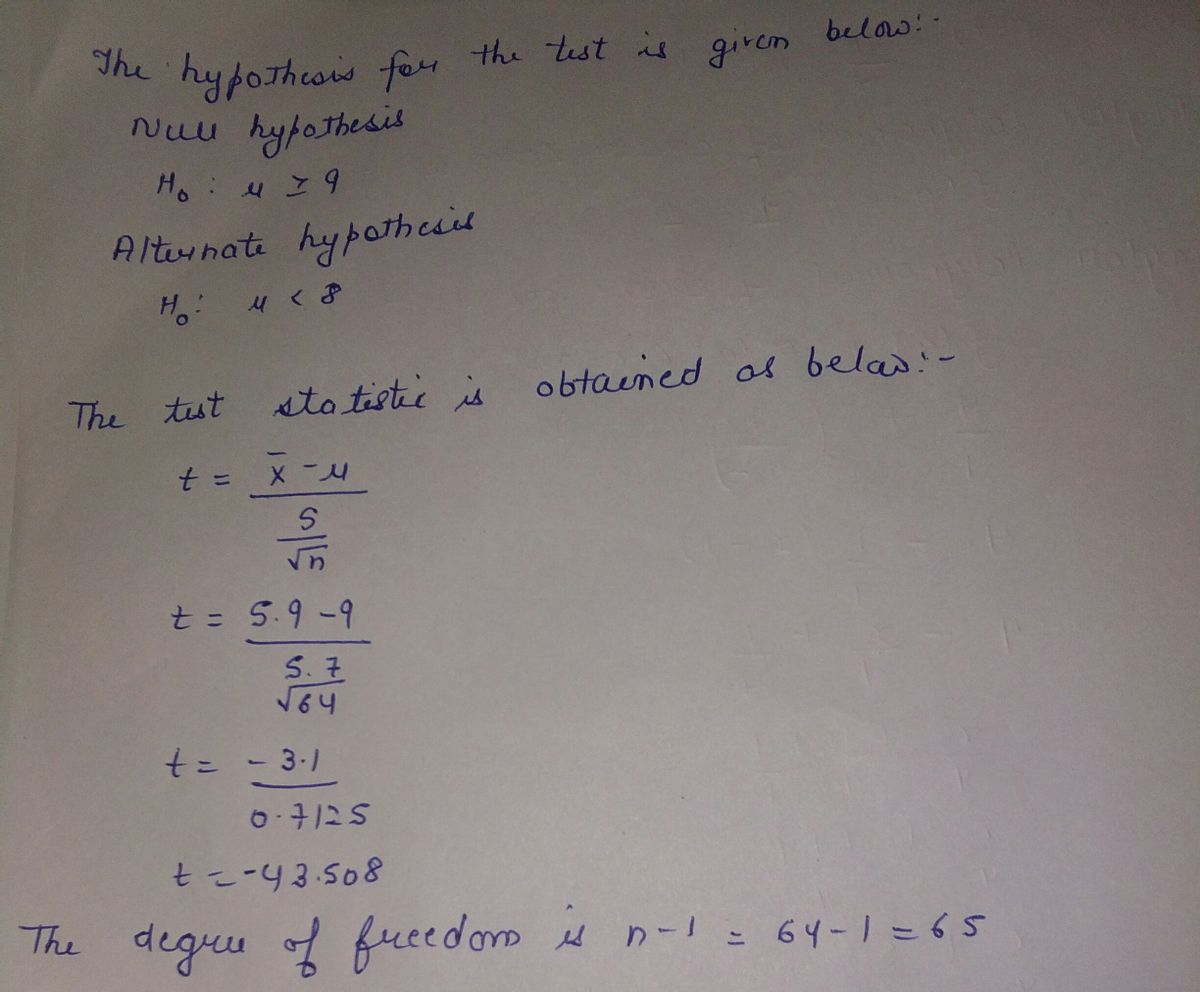 The hypothesis for the test is given below:-
Null hypothesis
H₀ : μ ≥ 9
Alternate hypothesis
H₀: μ < 8
The test statistic is obtained as below:-
t = x̄ - μ
S
√n
t = 5.9 - 9
5.7
√64
t = - 3.1
0.7125
t = -43.508
The degree of freedom is n-1 = 64-1 = 65